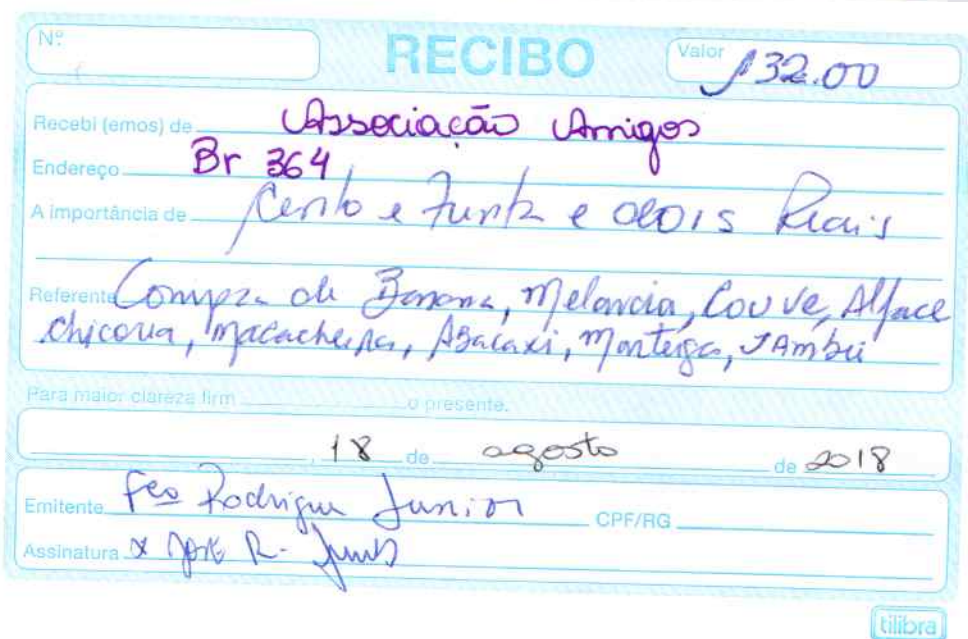 Nº
RECIBO
Valor 132.00
Recebi (emos) de Associação Amigos
Endereço Br 364
A importância de Cento e trinta e dois Reais
Referente Compra de Banana, Melancia, Couve, Alface
chicoria, macacheira, Abacaxi, Manteiga, JAmbú
Para maior clareza firm o presente.
, 18 de agosto de 2018
Emitente Fco Rodrigue Junior CPF/RG
Assinatura x R.
tilibra